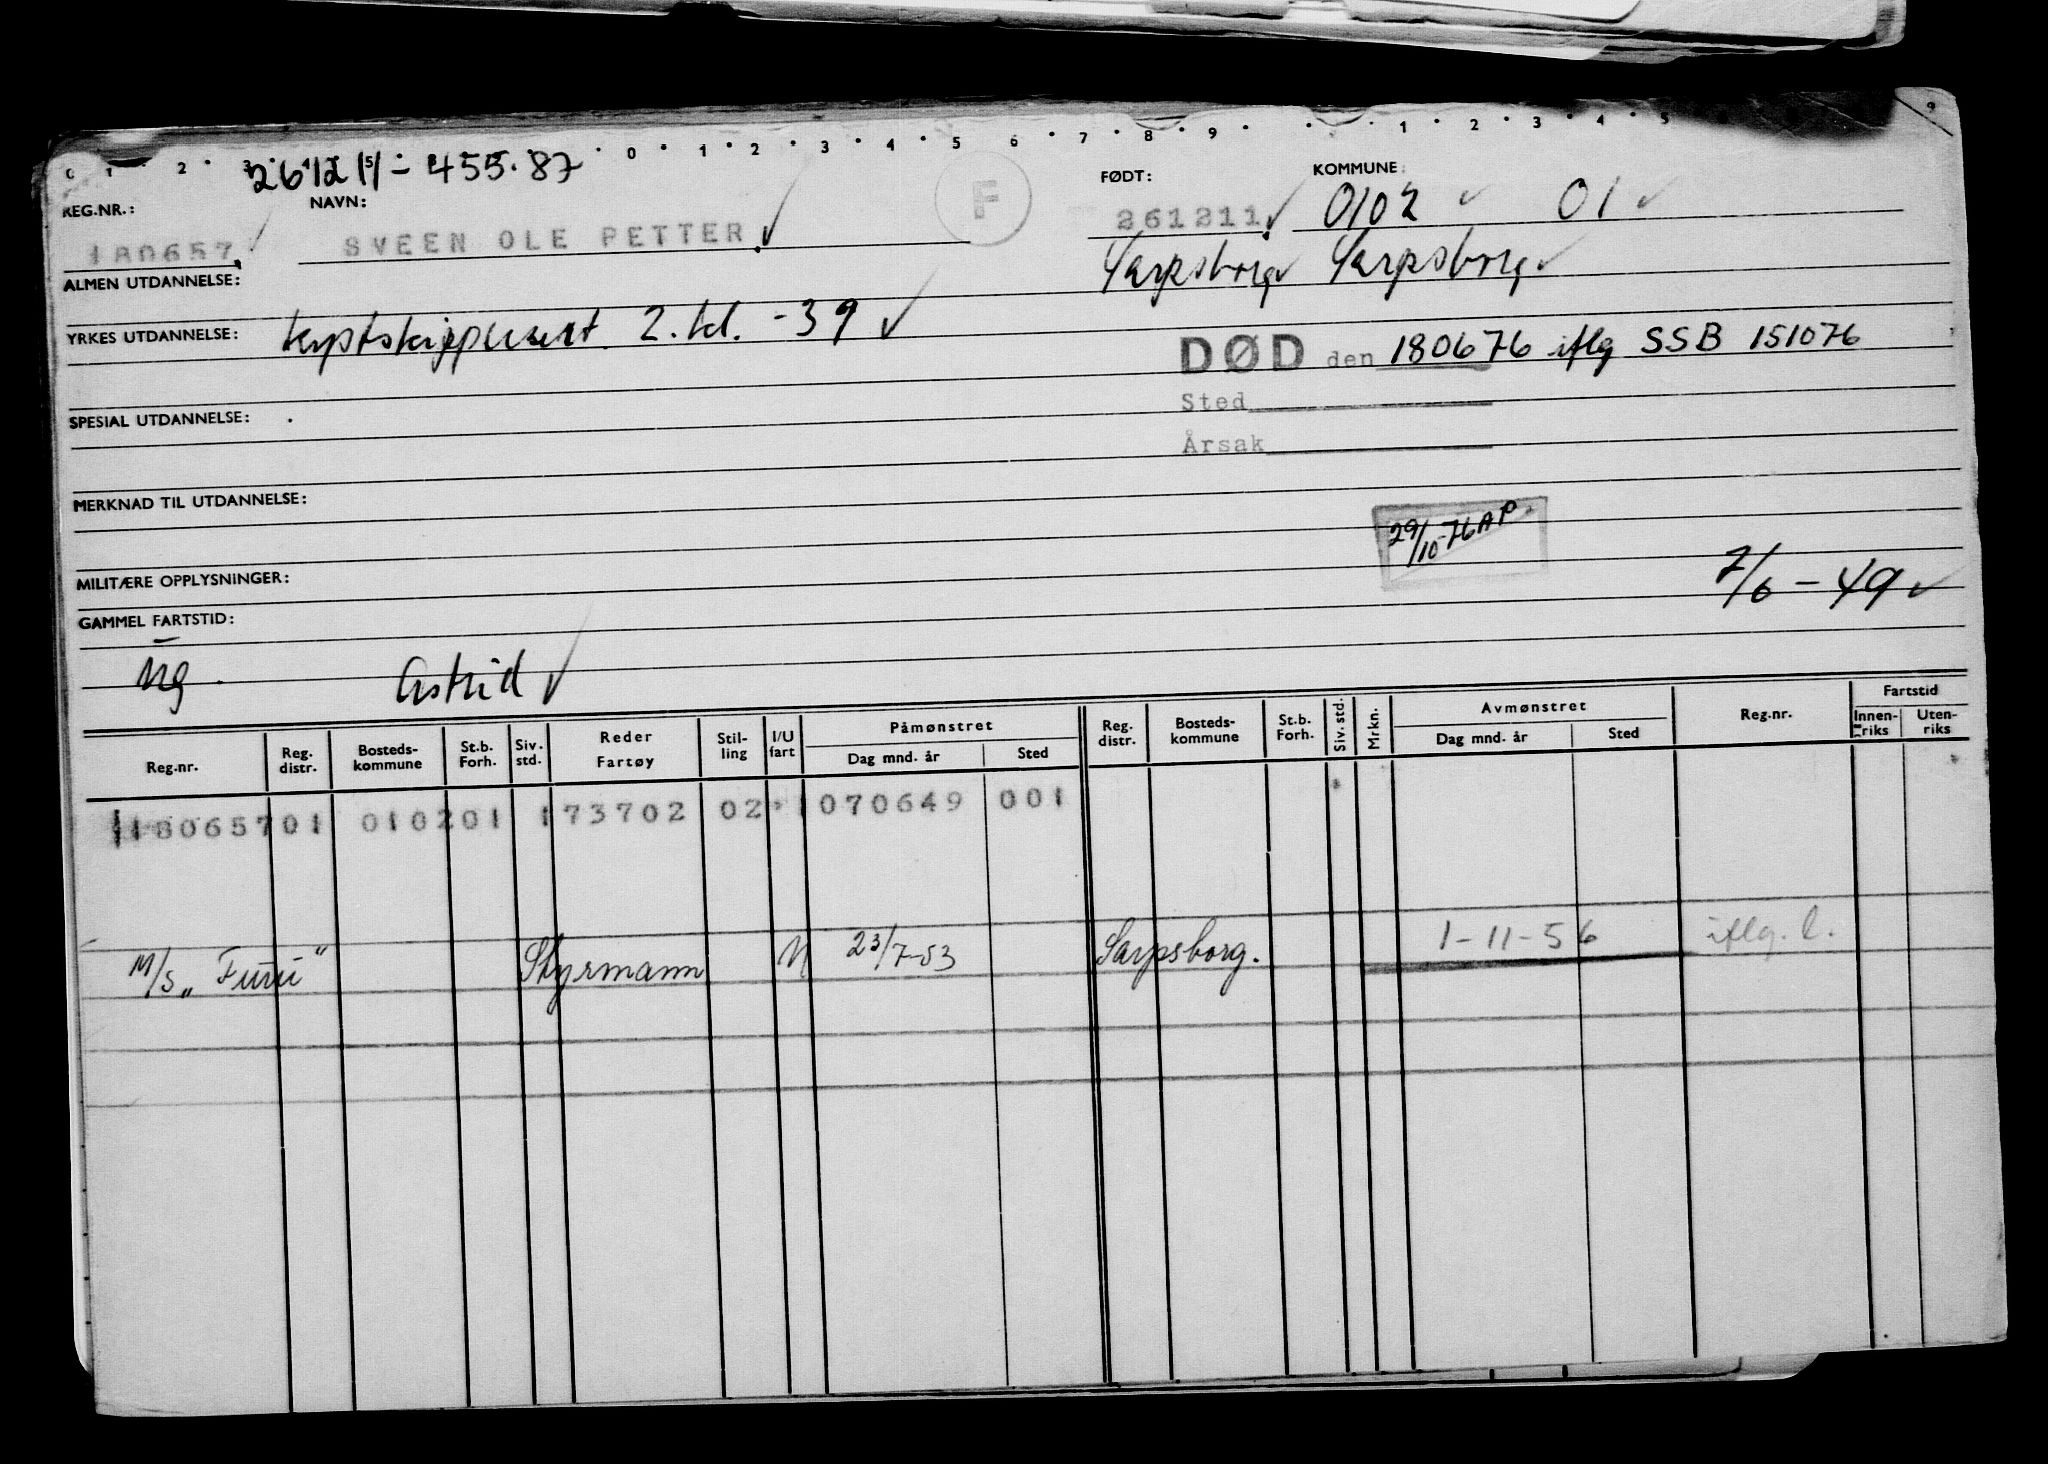 0 1 2 3 4 5 0 1 2 3 4 5 6 7 8 9 1 2 3 4 5 9
261211 - 455.87
REG.NR.: NAVN: F FØDT: KOMMUNE:
180657 SVEEN OLE PETTER 261211 0102 01
ALMEN UTDANNELSE: Sarpsborg Sarpsborg
YRKES UTDANNELSE: 2. kl. -39
DØD den 180676 iflg SSB 151076
Sted
SPESIAL UTDANNELSE:
Årsak
MERKNAD TIL UTDANNELSE:
29/10-76 AP.
MILITÆRE OPPLYSNINGER: 7/6 - 49
GAMMEL FARTSTID:
ug. Astrid
Reg.nr. Reg. distr. Bosteds-kommune St.b. Forh. Siv. std. Reder Fartøy Stil-ling I/U fart Påmønstret Dag mnd. år Sted Reg. distr. Bosteds-kommune St.b. Forh. Siv. std. Mrkn. Avmønstret Dag mnd. år Sted Reg.nr. Fartstid Innen-riks Uten-riks
180657 01 0102 01 1 73702 02 1 070649 001
M/S „Furu" Styrmann U 23/7-53 Sarpsborg. 1-11-56 iflg. l.